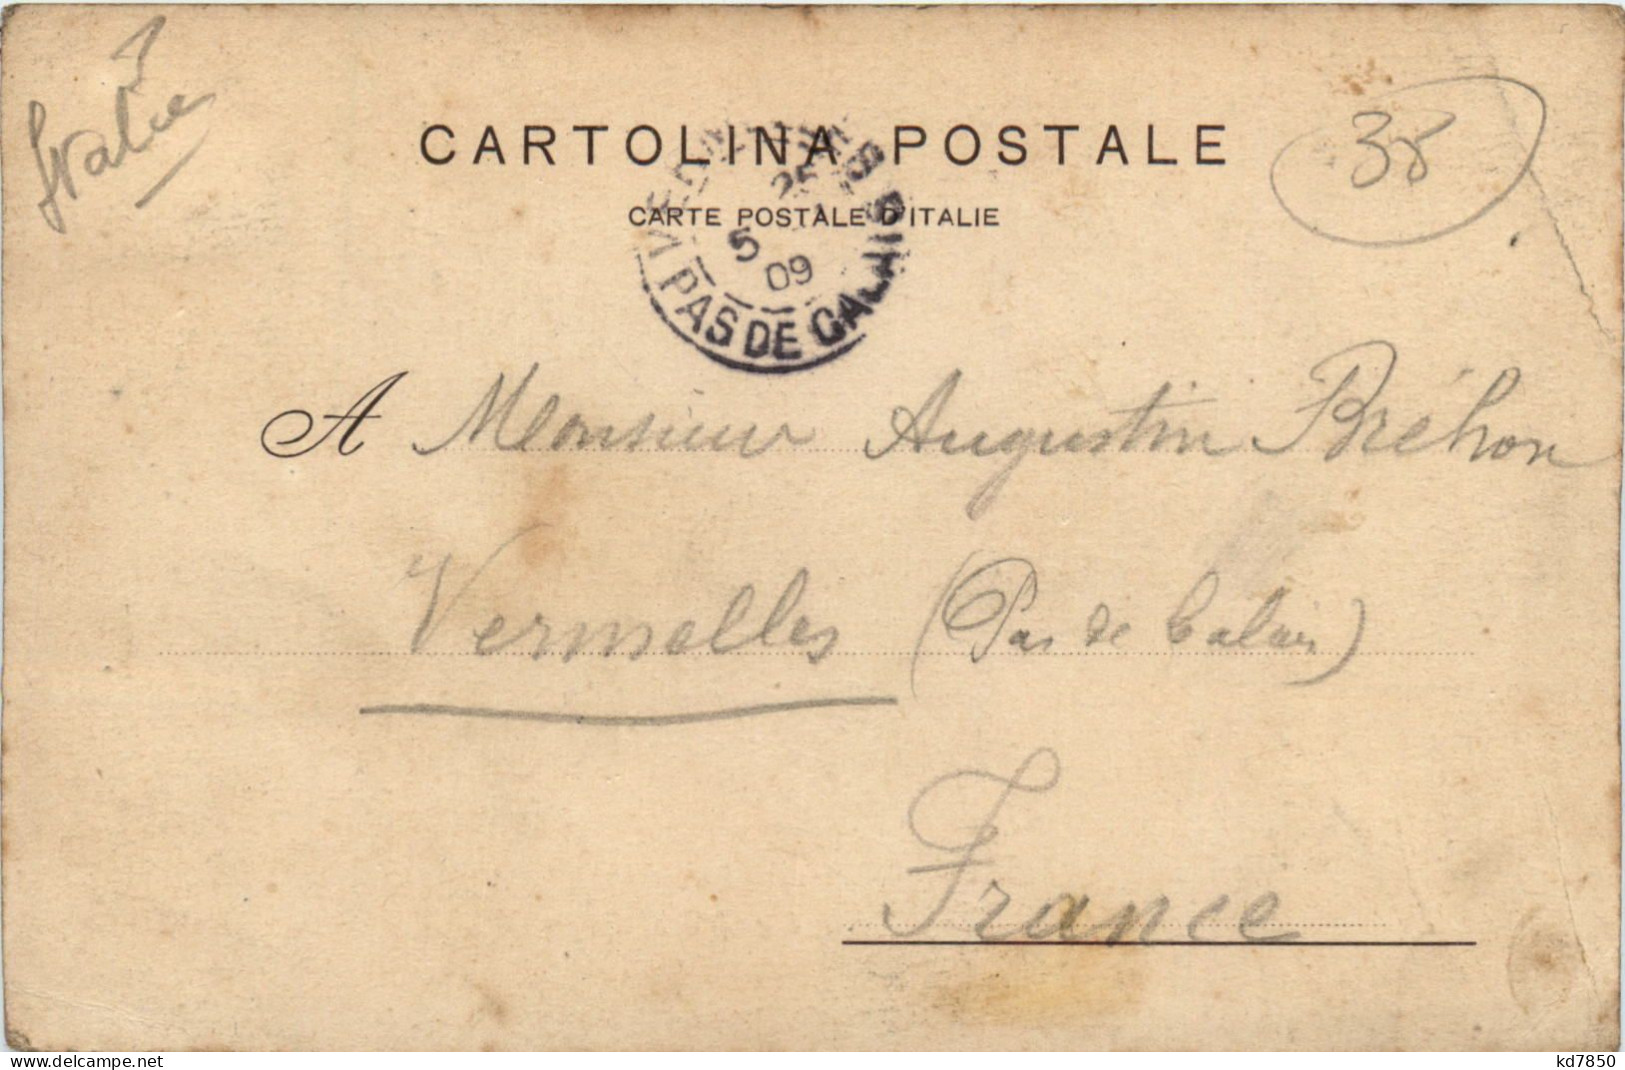 Italie
38
CARTOLINA POSTALE
CARTE POSTALE D'ITALIE
25
5
09
PAS DE CALAIS
A Monsieur Augustin Bréhon
Vermelles (Pas de Calais)
France
www.delcampe.net
kd7850